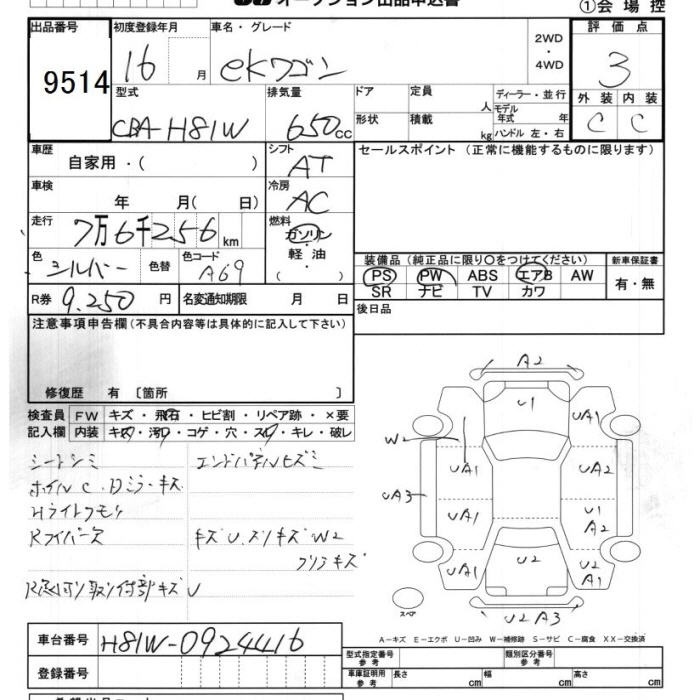 オークション出品申込書
①会場控
出品番号
9514
初度登録年月
16 月
車名・グレード
ekワゴン
2WD
・
4WD
評価点
3
外装 内装
C C
型式
CBA-H81W
排気量
650cc
ドア
形状
定員 人
積載 kg
ディーラー・並行
モデル年式 年
ハンドル 左・右
車歴
自家用・( )
シフト
AT
セールスポイント(正常に機能するものに限ります)
車検
年 月( 日)
冷房
AC
走行
7万6千256km
燃料
ガソリン
・
軽油
( )
色
シルバー 色替
色コード
A69
装備品(純正品に限り○をつけてください)
PS PW ABS エアB AW
SR ナビ TV カワ
新車保証書
有・無
R券 9.250 円
名変通知期限 月 日
後日品
注意事項申告欄(不具合内容等は具体的に記入して下さい)
修復歴 有 〔箇所 〕
検査員
記入欄
FW キズ・飛石・ヒビ割・リペア跡・×要
内装 キズ・汚れ・コゲ・穴・スレ・キレ・破レ
シートシミ エンドパネルヒズミ
ホイルC.Dミラーキズ
Hライトクモリ
Rワイパー欠 キズU.スリキズ W2
キズ
取付部キズU
A2
U1
UA1 UA1
W2
UA1 UA2
UA3
UA1 U1
A2
UA1 U2 U2
A1
スペア
U2 A3
A-キズ E-エクボ U-凹み W-補修跡 S-サビ C-腐食 XX-交換済
車台番号 H81W-0924416
登録番号
型式指定番号
参考
類別区分番号
参考
車庫証明用
参考
長さ cm
幅 cm
高さ cm